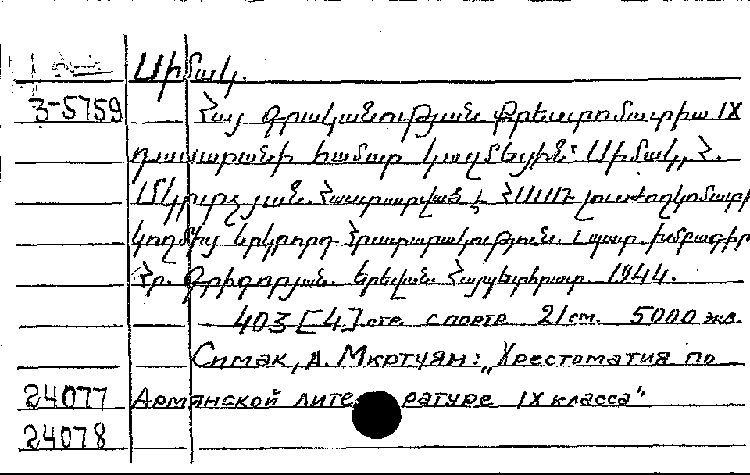 Սիմակ.
3-5759 Հայ գրականության քրեստոմատիա IX
դասարանի համար կազմեցին: Սիմակ, Հ.
Մկրտչյան. Հաստատված է ՀՍՍՌ լուսժողկոմատի
կողմից երկրորդ հրատարակություն. պատ. խմբագիր
Հր. Գրիգորյան. Երևան. Հայպետհրատ. 1944.
403 [4] стр. с портр 21 см. 5000 экз.
Симак, А. Мкртчян: „Хрестоматия по
24077 Армянской литературе IX класса"
24078